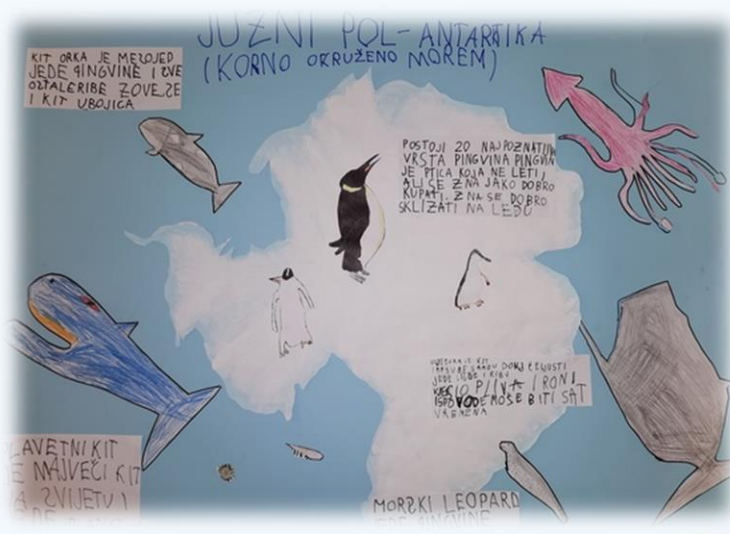 JUŽNI POL- ANTARTIKA
(KOPNO OKRUŽENO MOREM)
KIT ORKA JE MEZOJED
JEDE PINGVINE I SVE
OSTALE RIBE ZOVE SE
I KIT UBOJICA
POSTOJI 20 NAJPOZNATIJIH
VRSTA PINGVINA PINGVIN
JE PTICA KOJA NE LETI,
ALI SE ZNA JAKO DOBRO
KUPATI. ZNA SE DOBRO
SKLIZATI NA LEDU
KIT
IMA ZUBE SAMO U DONJ ČELJUSTI
JEDE LIGNJE I RIBU
PLIVA I RONI
ISPOD VODE MOŠE BITI SAT
VREMENA
PLAVETNI KIT
JE MAJVEČI KIT
NA SVIJETU I
MORSKI LEOPARD
JEDE PINGVINE